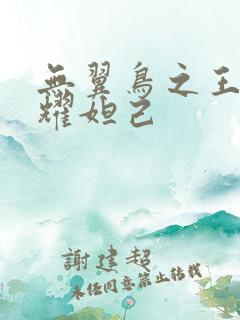 無翼鳥之王
耀妲己
謝建超
未任同意禁止转载